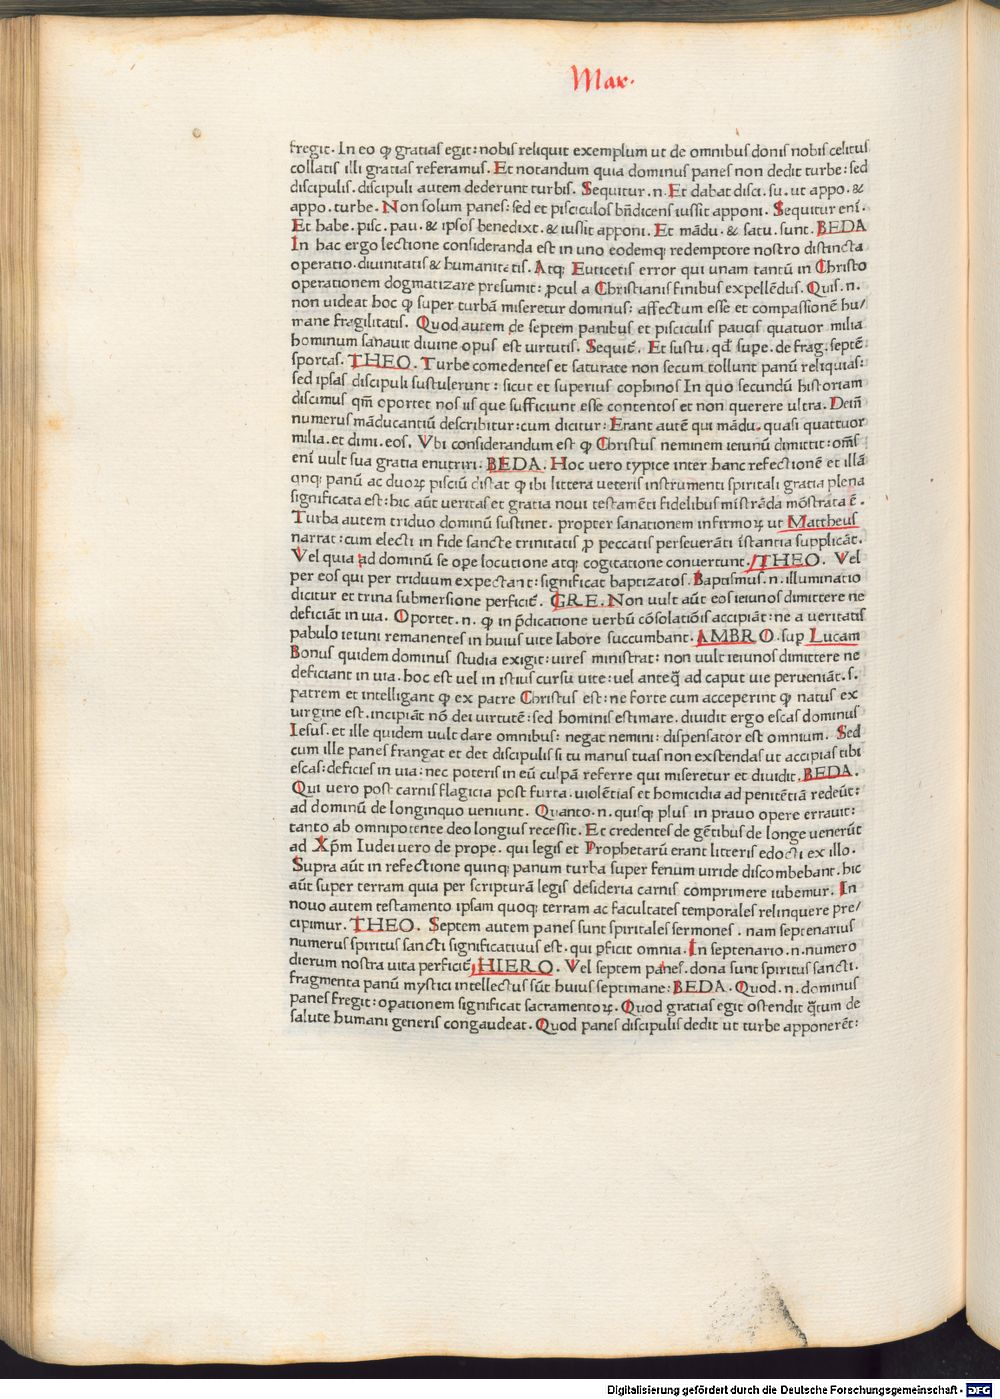 Mar.
fregit. In eo ꝙ gratias egit: nobis reliquit exemplum ut de omnibus donis nobis celitus
collatis illi gratias referamus. Et notandum quia dominus panes non dedit turbe: sed
discipulis. discipuli autem dederunt turbis. Sequitur .n. Et dabat disci. su. ut appo. &
appo. turbe. Non solum panes: sed et pisciculos bñdicens iussit apponi. Sequitur eni.
Et habe. pisc. pau. & ipsos benedixt. & iussit apponi. Et mãdu. & satu. sunt. BEDA
In hac ergo lectione consideranda est in uno eodemqꝫ redemptore nostro distincta
operatio. diuinitatis & humanitatis. Atqꝫ Euticetis error qui unam tantũ in Christo
operationem dogmatizare presumit: ꝓcul a Christianis finibus expellẽdus. Quis .n.
non uideat hoc ꝙ super turbã miseretur dominus: affectum esse et compassionẽ hu/
mane fragilitatis. Quod autem de septem panibus et pisciculis paucis quatuor milia
hominum sanauit diuine opus est uirtutis. Sequit᷑. Et sustu. qđ supe. de frag. septẽ:
sportas. THEO. Turbe comedentes et saturate non secum tollunt panũ reliquias:
sed ipsas discipuli sustulerunt: sicut et superius cophinos In quo secundũ historiam
discimus qm̃ oportet nos iis que sufficiunt esse contentos et non querere ultra. Dein̄
numerus mãducantiũ describitur: cum dicitur: Erant autẽ qui mãdu. quasi quattuor
milia. et dimi. eos. Vbi considerandum est ꝙ Christus neminem ieiunũ dimittit: om̃s
eni uult sua gratia enutriri. BEDA. Hoc uero typice inter hanc refectionẽ et illã
qnqꝫ panũ ac duoꝝ pisciũ distat ꝙ ibi littera ueteris instrumenti spiritali gratia plena
significata est: hic aũt ueritas et gratia noui testamẽti fidelibus mistrãda mõstrata ẽ.
Turba autem triduo dominũ sustinet. propter sanationem infirmoꝝ ut Mattheus
narrat: cum electi in fide sancte trinitatis ꝓ peccatis perseuerãti ĩstantia supplicãt.
Vel quia ad dominũ se oꝑe locutione atqꝫ cogitatione conuertunt. THEO. Vel
per eos qui per triduum expectant: significat baptizatos. Baptismus .n. illuminatio
dicitur et trina submersione perficit᷑. GRE. Non uult aũt eos ieiunos dimittere ne
deficiãt in uia. Oportet .n. ꝙ in p̃dicatione uerbũ cõsolatiõis accipiãt: ne a ueritatis
pabulo ieiuni remanentes in huius uite labore succumbant. AMBRO. suꝑ Lucam
Bonus quidem dominus studia exigit: uires ministrat: non uult ieiunos dimittere ne
deficiant in uia. hoc est uel in istius cursu uite: uel anteq̃ ad caput uie perueniãt. s.
patrem et intelligant ꝙ ex patre Christus est: ne forte cum acceperint ꝙ natus ex
uirgine est. incipiãt nõ dei uirtutẽ: sed hominis estimare. diuidit ergo escas dominus
Iesus. et ille quidem uult dare omnibus: negat nemini: dispensator est omnium. Sed
cum ille panes frangat et det discipulis si tu manus tuas non extendas ut accipias tibi
escas: deficies in uia: nec poteris in eũ culpã referre qui miseretur et diuidit. BEDA.
Qui uero post carnis flagicia post furta. uiolẽtias et homicidia ad penitẽtiã redeũt:
ad dominũ de longinquo ueniunt. Quanto .n. quisqꝫ plus in prauo opere errauit:
tanto ab omnipotente deo longius recessit. Et credentes de gẽtibus de longe uenerũt
ad Xp̃m Iudei uero de prope. qui legis et Prophetarũ erant litteris edocti ex illo.
Supra aũt in refectione quinqꝫ panum turba super fenum uiride discombebant. hic
aũt super terram quia per scripturã legis desideria carnis comprimere iubemur. In
nouo autem testamento ipsam quoqꝫ terram ac facultates temporales relinquere pre/
cipimur. THEO. Septem autem panes sunt spiritales sermones. nam septenarius
numerus spiritus sancti significatiuus est. qui ꝑficit omnia. In septenario .n. numero
dierum nostra uita perficit᷑. HIERO. Vel septem panes. dona sunt spiritus sancti.
fragmenta panũ mystici intellectus sũt huius septimane: BEDA. Quod .n. dominus
panes fregit: oꝑationem significat sacramentoꝝ. Quod gratias egit ostendit q̃tum de
salute humani generis congaudeat. Quod panes discipulis dedit ut turbe apponerẽt:
Digitalisierung gefördert durch die Deutsche Forschungsgemeinschaft - DFG